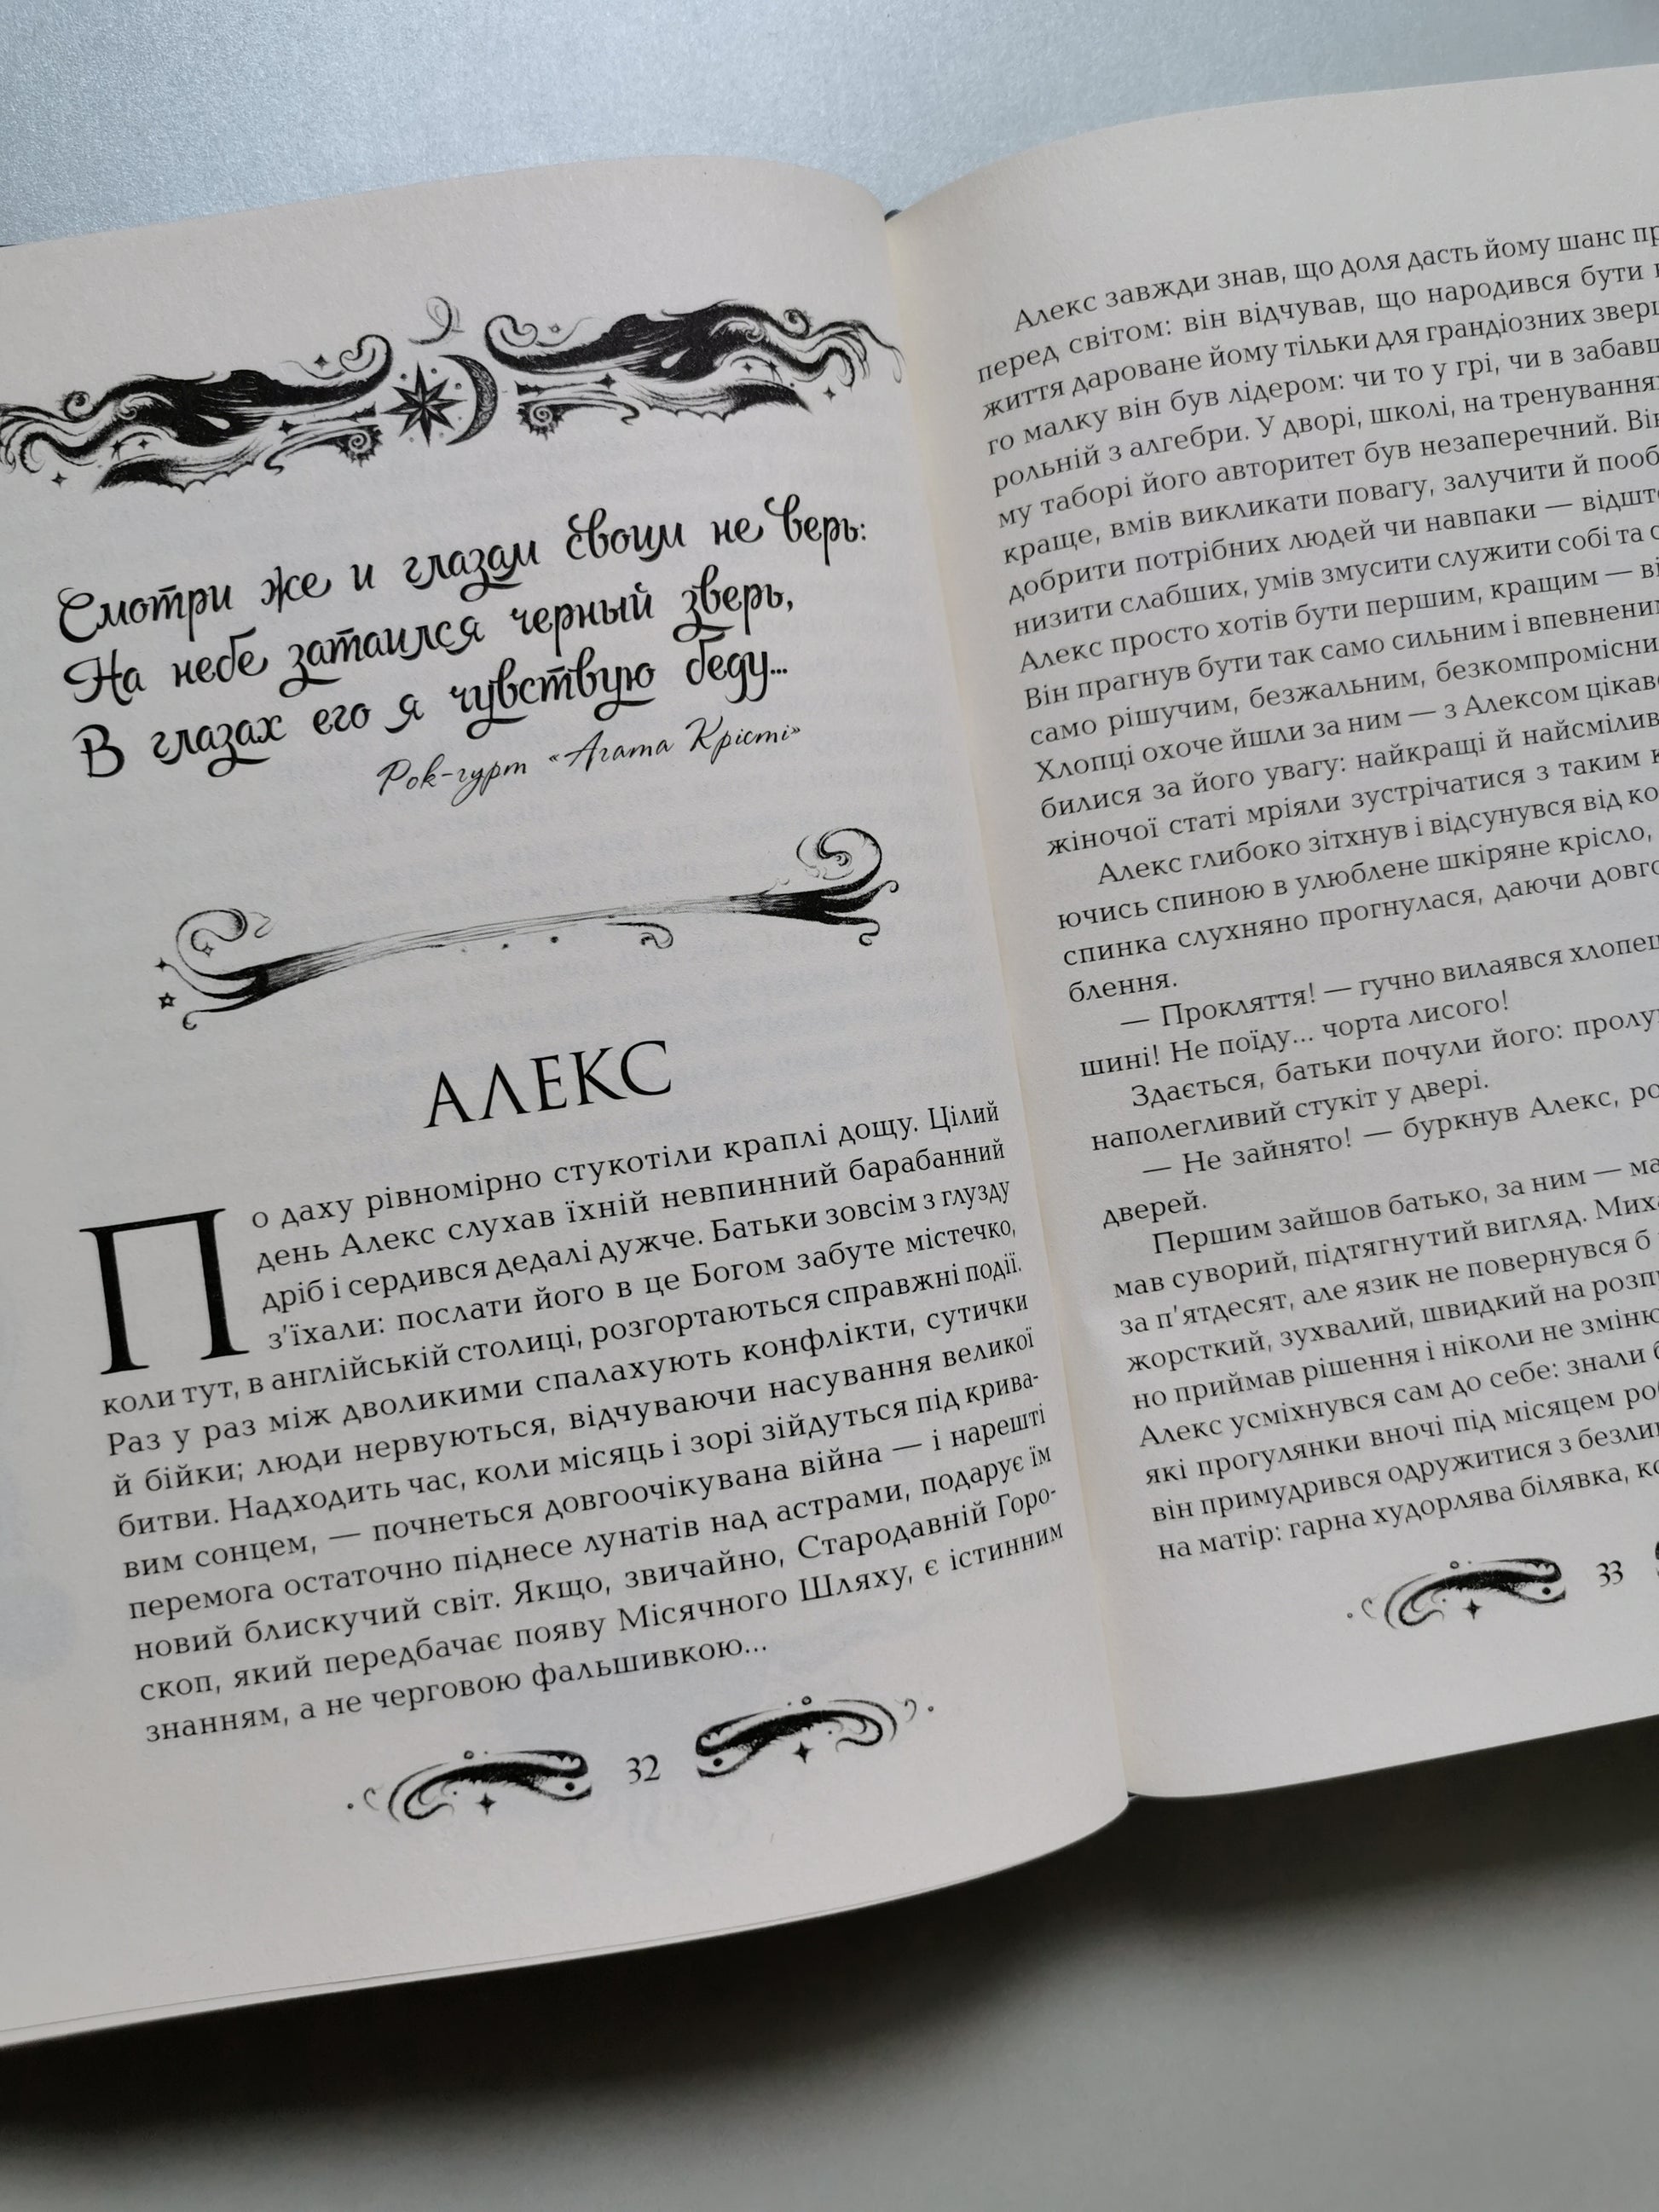 Смотри же и глазам своим не верь:
На небе затаился черный зверь,
В глазах его я чувствую беду...
Рок-гурт «Агата Крісті»
АЛЕКС
По даху рівномірно стукотіли краплі дощу. Цілий
день Алекс слухав їхній невпинний барабанний
дріб і сердився дедалі дужче. Батьки зовсім з глузду
з’їхали: послати його в це Богом забуте містечко,
коли тут, в англійській столиці, розгортаються справжні події.
Раз у раз між дволикими спалахують конфлікти, сутички
й бійки; люди нервуються, відчуваючи насування великої
битви. Надходить час, коли місяць і зорі зійдуться під крива-
вим сонцем, — почнеться довгоочікувана війна — і нарешті
перемога остаточно піднесе лунатів над астрами, подарує їм
новий блискучий світ. Якщо, звичайно, Стародавній Горо-
скоп, який передбачає появу Місячного Шляху, є істинним
знанням, а не черговою фальшивкою...
32
Алекс завжди знав, що доля дасть йому шанс
перед світом: він відчував, що народився бути
життя дароване йому тільки для грандіозних
го малку він був лідером: чи то у грі, чи в
рольній з алгебри. У дворі, школі, на
му таборі його авторитет був незаперечний.
краще, вмів викликати повагу, залучити й
добрити потрібних людей чи навпаки —
низити слабших, умів змусити служити собі та
Алекс просто хотів бути першим, кращим —
Він прагнув бути так само сильним і
само рішучим, безжальним,
Хлопці охоче йшли за ним — з Алексом
билися за його увагу: найкращі й
жіночої статі мріяли зустрічатися з таким
Алекс глибоко зітхнув і відсунувся від
ючись спиною в улюблене шкіряне крісло,
спинка слухняно прогнулася, даючи
блення.
— Прокляття! — гучно вилаявся
шині! Не поїду... чорта лисого!
Здається, батьки почули його:
наполегливий стукіт у двері.
— Не зайнято! — буркнув Алекс,
дверей.
Першим зайшов батько, за ним —
мав суворий, підтягнутий вигляд.
за п'ятдесят, але язик не повернувся б
жорсткий, зухвалий, швидкий на
но приймав рішення і ніколи не
Алекс усміхнувся сам до себе: знали
які прогулянки вночі під місяцем
він примудрився одружитися з
на матір: гарна худорлява білявка,
33